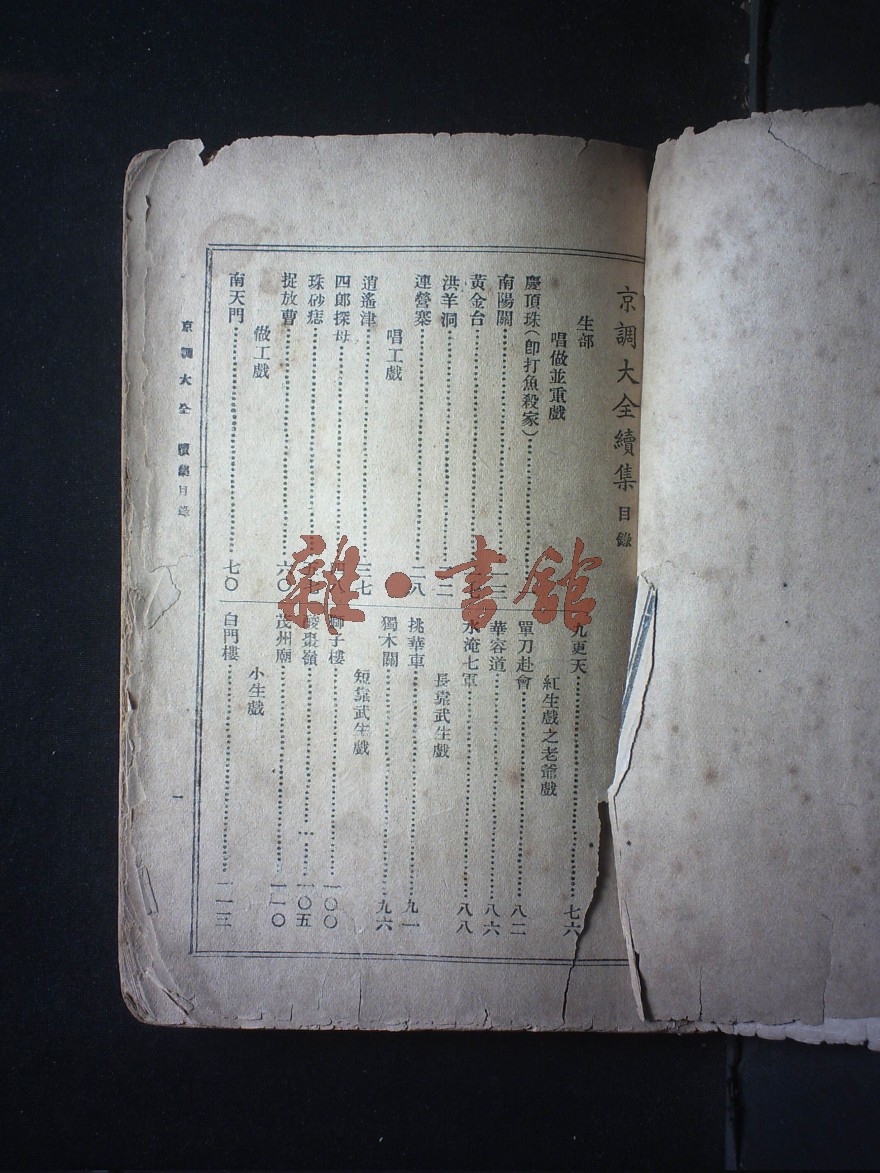 京調大全續集 目錄
生部
唱做並重戲
慶頂珠(卽打魚殺家)
南陽關
黃金台
洪羊洞 二二
連營寨 二八
唱工戲
逍遙津 三七
四郎探母
珠砂痣
捉放曹 六〇
做工戲
南天門 七〇
九更天 七六
紅生戲之老爺戲
單刀赴會 八二
華容道 八六
水淹七軍 八八
長靠武生戲
挑華車 九一
獨木關 九六
短靠武生戲
獅子樓 一〇〇
酸棗嶺 一〇五
茂州廟 一一〇
小生戲
白門樓 一一三
京調大全 續集目錄
一
雜·書館